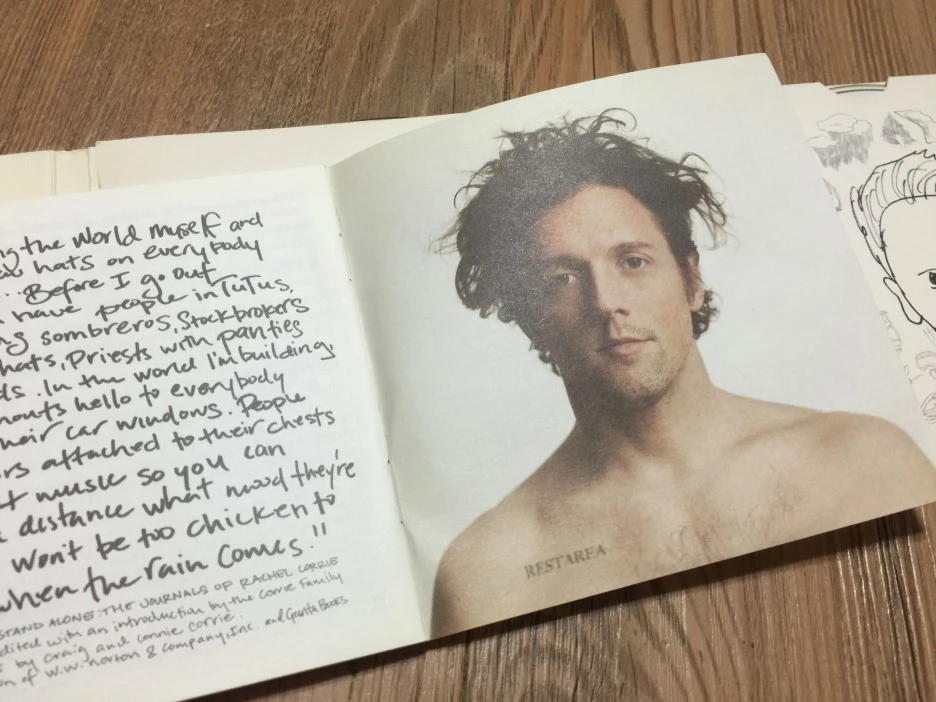 the World myself and
hats on everybody
... Before I go out
have people in TuTus,
sombreros, Stockbrokers
hats, Priests with panties
. In the world I'm building,
hello to everybody
car windows. People
attached to their chests
music so you can
distance what mood they're
won't be too chicken to
when the rain comes."
STAND ALONE: THE JOURNALS OF RACHEL CORRIE
edited with an introduction by the Corrie Family
by Craig and Connie Corrie.
of W.W. Norton & Company, Inc. and Granta Books
RESTAREA